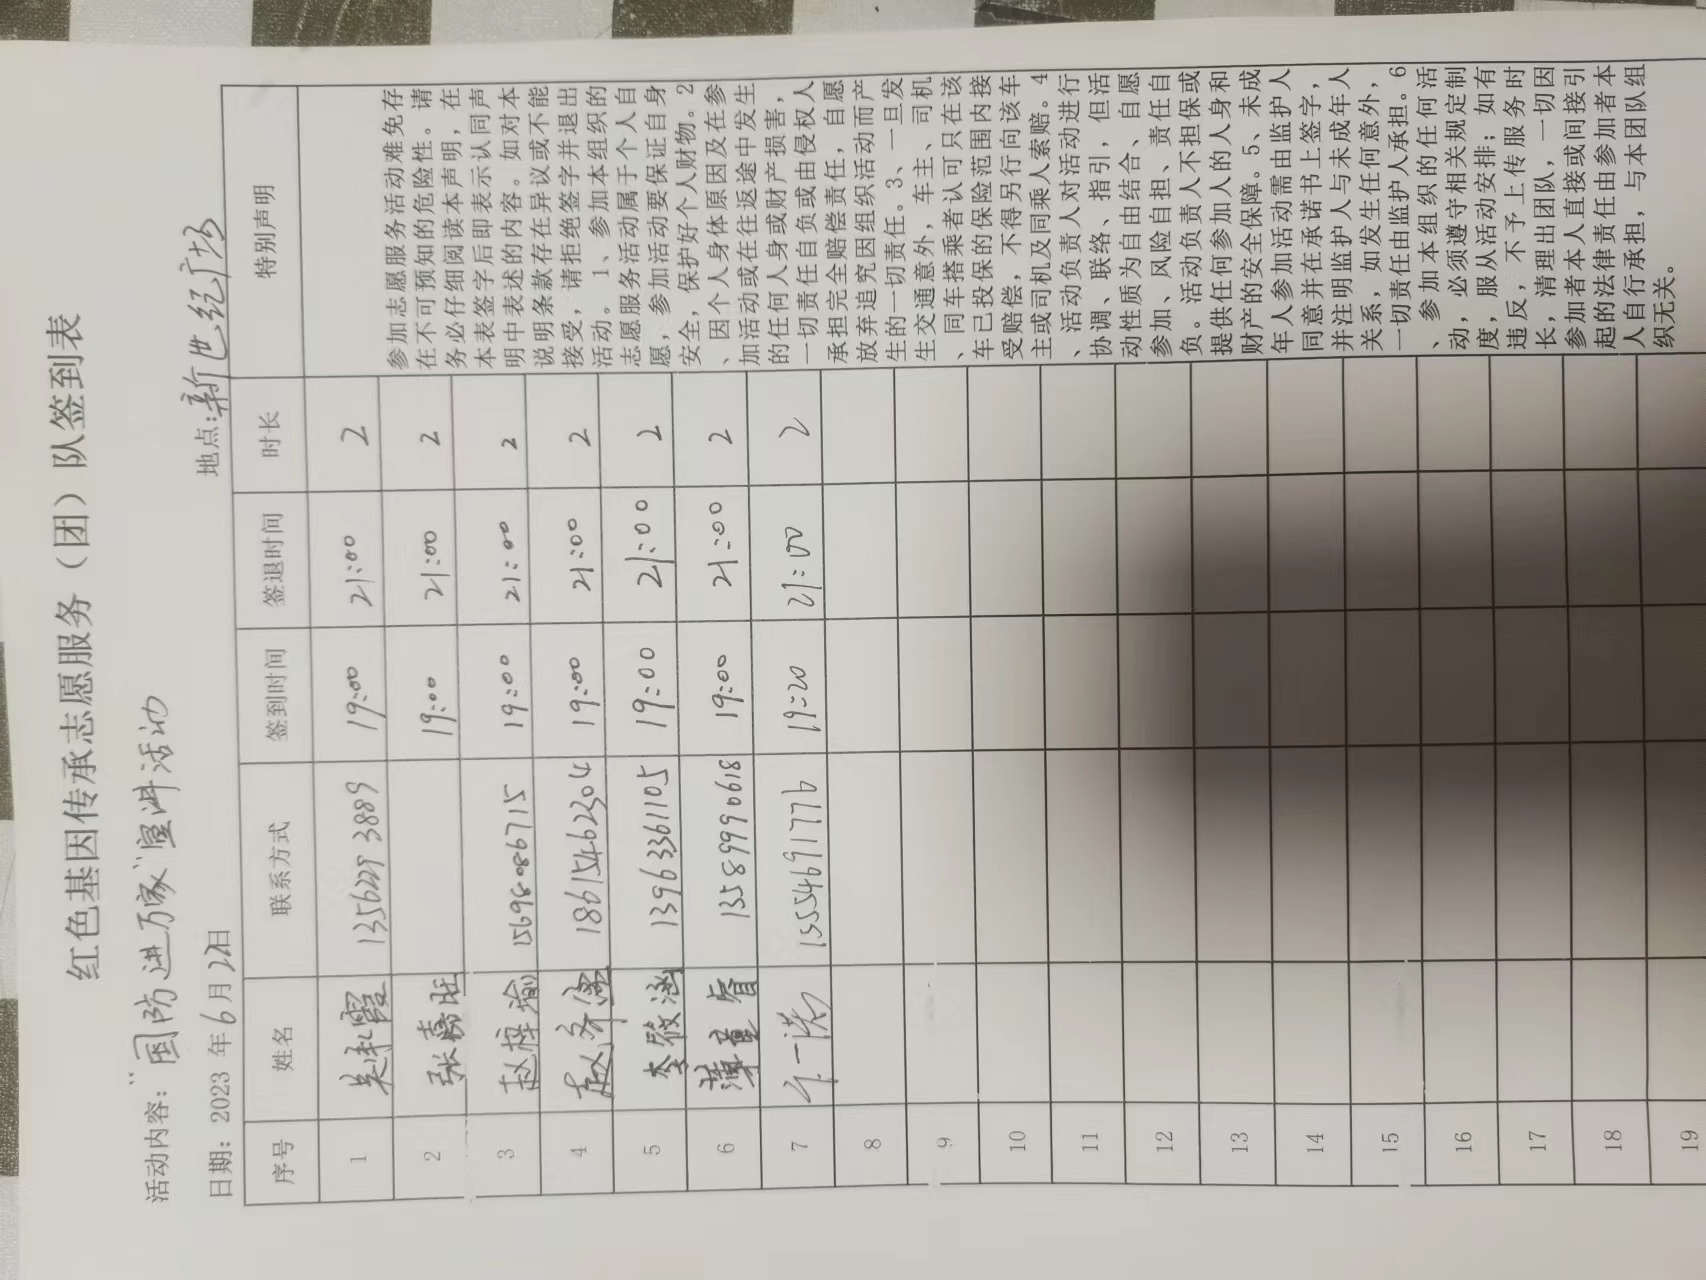 红色基因传承志愿服务（团）队签到表
活动内容：“国防进万家”宣讲活动
日期：2023年6月22日 地点：新世纪广场
序号 姓名 联系方式 签到时间 签退时间 时长 特别声明
1 霞 13562493889 19:00 21:00 2
2 张嘉旺 19:00 21:00 2
3 赵梓渝 15698086715 19:00 21:00 2
4 赵济 18615462304 19:00 21:00 2
5 李筱涵 13963361105 19:00 21:00 2
6 薄童睿 13589990618 19:00 21:00 2
7 15554691776 19:20 21:00 2
8
9
10
11
12
13
14
15
16
17
18
19
参加志愿服务活动难免存
在不可预知的危险性。请
务必仔细阅读本声明，在
本表签字后即表示认同声
明中表述的内容。如对本
说明条款存在异议或不能
接受，请拒绝签字并退出
活动。 1、参加本组织的
志愿服务活动属于个人自
愿，参加活动要保证自身
安全，保护好个人财物。2
、因个人身体原因及在参
加活动或在往返途中发生
的任何人身或财产损害，
一切责任自负或由侵权人
承担完全赔偿责任，自愿
放弃追究因组织活动而产
生的一切责任。3、一旦发
生交通意外，车主、司机
、同车搭乘者认可只在该
车已投保的保险范围内接
受赔偿，不得另行向该车
主或司机及同乘人索赔。4
、活动负责人对活动进行
协调、联络、指引，但活
动性质为自由结合、自愿
参加、风险自担、责任自
负。活动负责人不担保或
提供任何参加人的人身和
财产的安全保障。5、未成
年人参加活动需由监护人
同意并在承诺书上签字，
并注明监护人与未成年人
关系，如发生任何意外，
一切责任由监护人承担。6
、参加本组织的任何活
动，必须遵守相关规定制
度，服从活动安排；如有
违反，不予上传服务时
长，清理出团队，一切因
参加者本人直接或间接引
起的法律责任由参加者本
人自行承担，与本团队组
织无关。